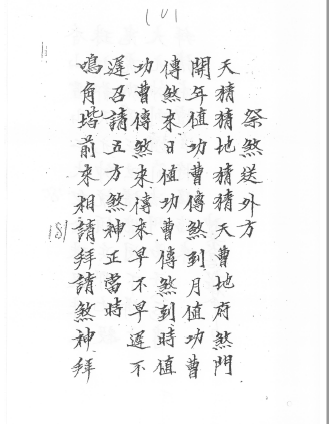 (10)
祭煞送外方
天猜猜地猜猜天曹地府煞門
開年值功曹傳煞到月值功曹
傳煞來日值功曹傳煞到時值
功曹傳煞來傳來早不早遲不
遲召請五方煞神正當時
鳴角堦前來相請拜請煞神拜